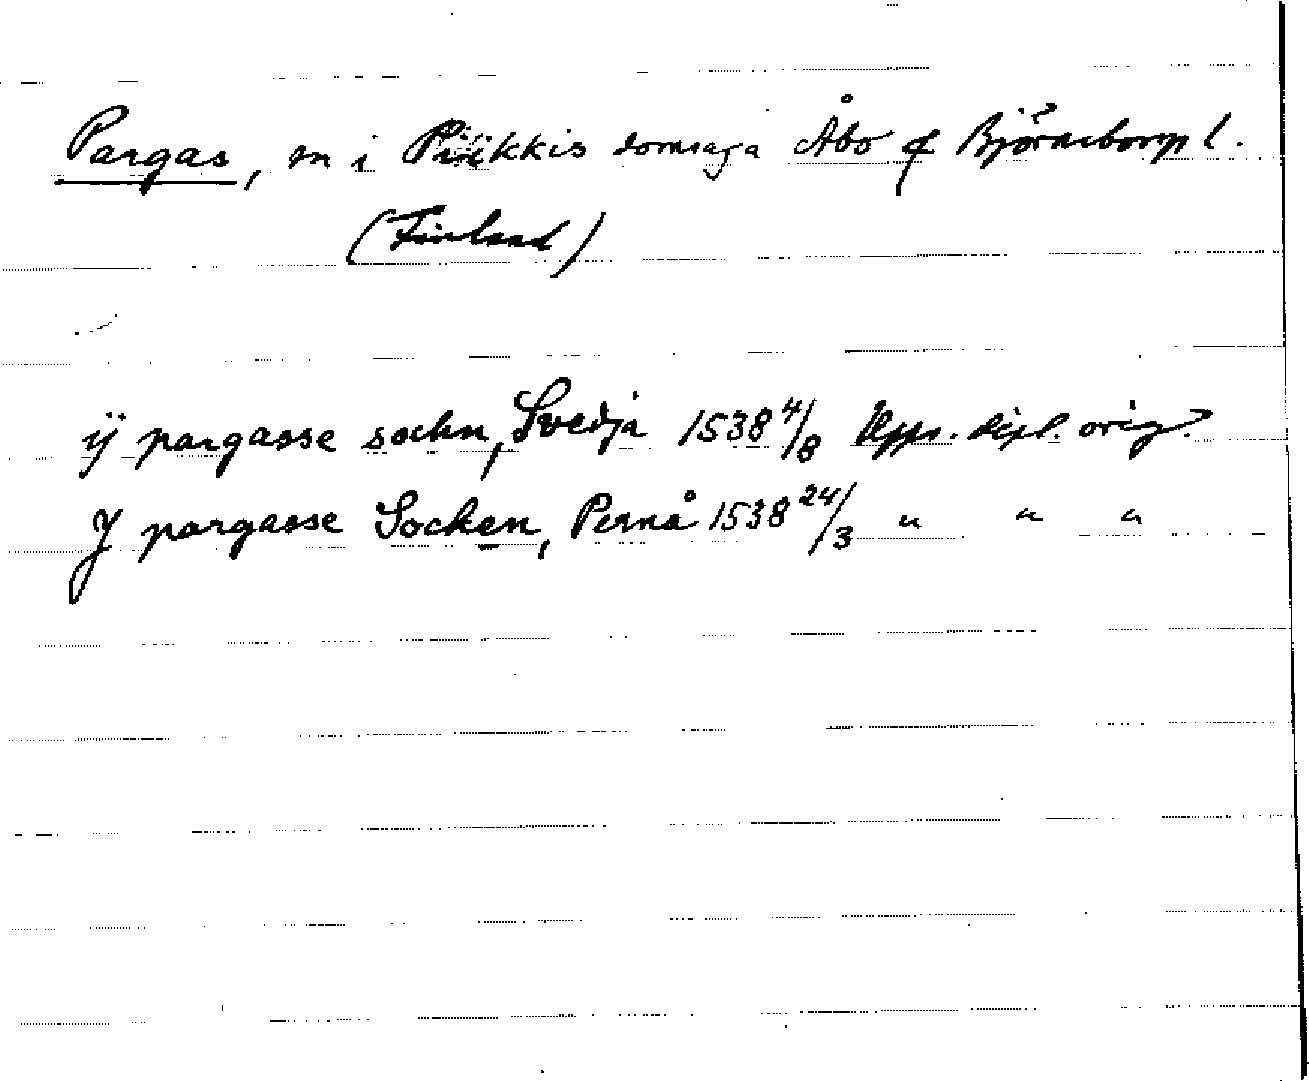 Pargas, sn i Piikkis domsaga Åbo o Björneborgs l.
(Finland)
ij pargasse sochn, Svedja 1538 4/8 Upps. dipl. orig.
J pargasse Socken, Pernå 1538 24/3 " " "